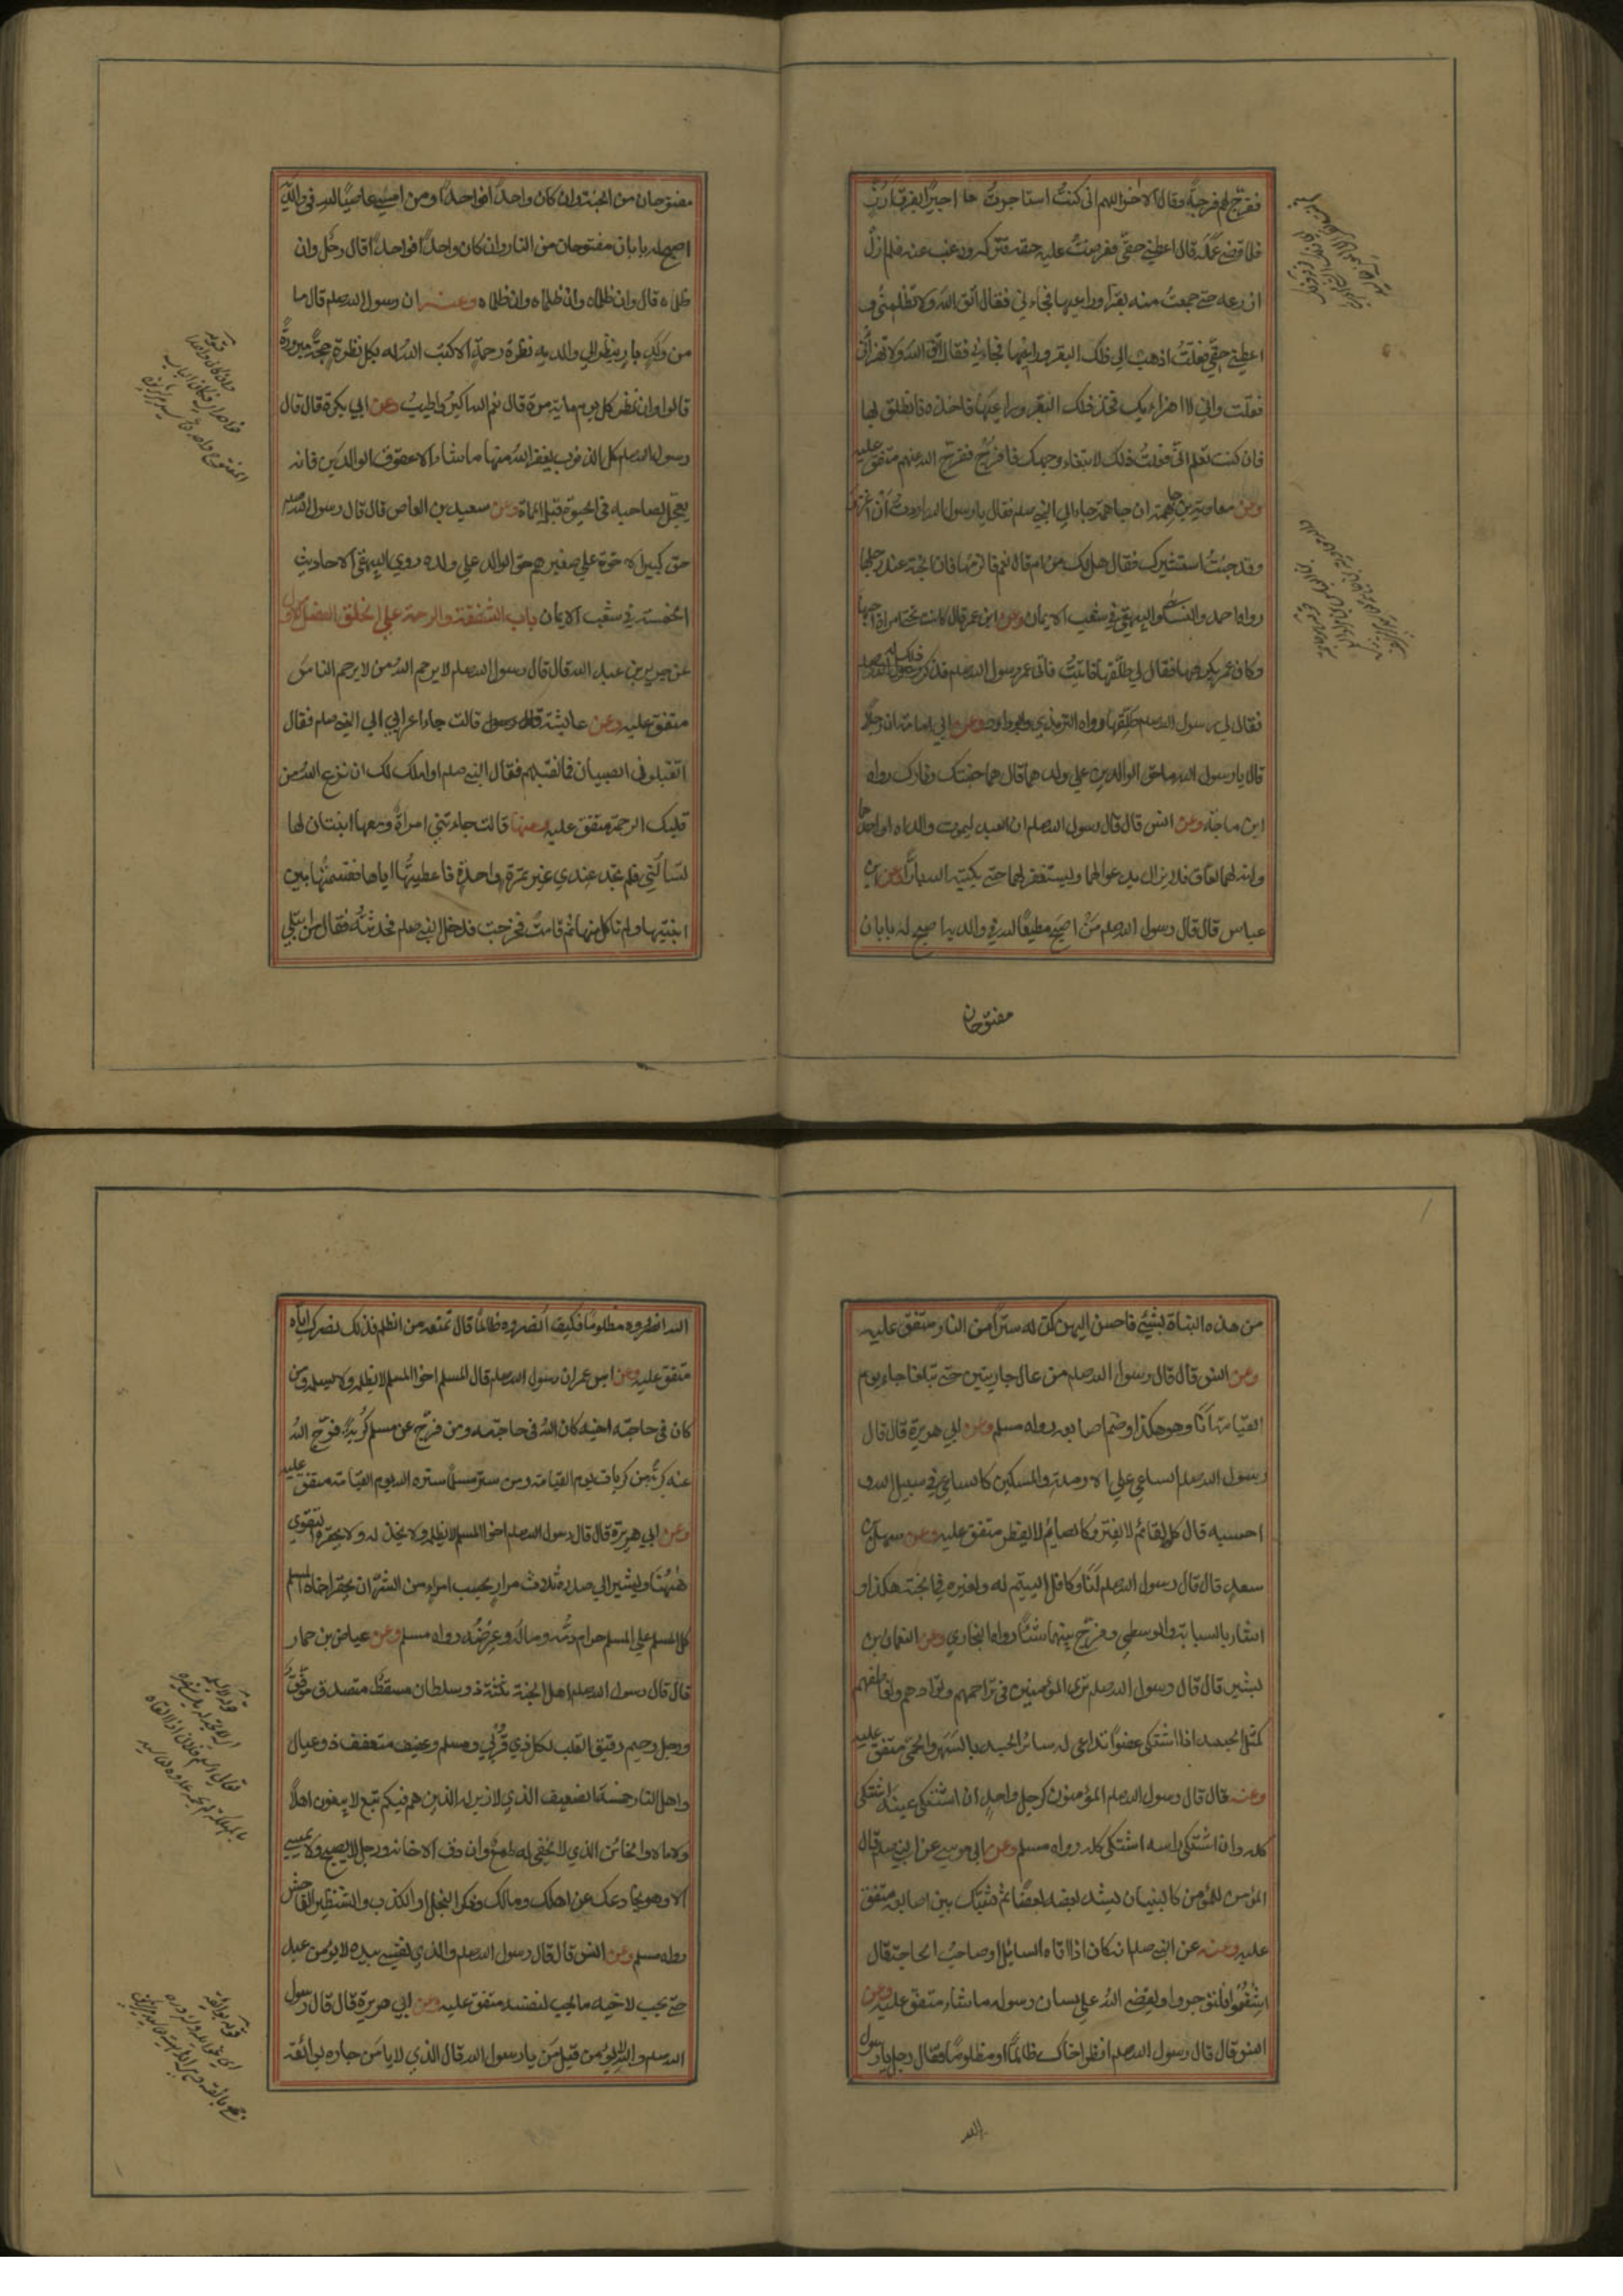 ففرج لهم فرجة وقال الاخر اللهم اني كنت استاجرت اجيرا بفرق ارز
فلما قضى عمله قال اعطني حقي فعرضت عليه حقه فتركه ورغب عنه فلم ازل
ازرعه حتى جمعت منه بقرا وراعيها فجاءني فقال اتق الله ولا تظلمني و
اعطني حقي فقلت اذهب الى ذلك البقر وراعيها فجاءني فقال اتق الله ولا تهزأ بي
فقلت واني لا اهزاء بك فخذ ذلك البقر وراعيها فاخذه فانطلق بها
فان كنت تعلم اني فعلت ذلك لابتغاء وجهك فافرج ففرج الله عنهم متفق عليه
وعن معاوية بن جاهمة ان جاهمة جاء الي النبي صلعم فقال يا رسول الله اردت أن اغزو
وقد جئت استشيرك فقال هل لك من ام قال نعم قال الزمها فان الجنة عند رجلها
رواه احمد والنسائي والبيهقي في شعب الايمان وعن ابن عمر قال كانت تحتي امراة احبها
وكان عمر يكرهها فقال لي طلقها فابيت فاتى عمر رسول الله صلعم فذكر ذلك له
فقال لي رسول الله صلعم طلقها رواه الترمذي وابو داود وعن ابي امامة ان رجلا
قال يا رسول الله ما حق الوالدين علي ولدهما قال هما جنتك ونارك رواه
ابن ماجة وعن انس قال قال رسول الله صلعم ان العبد ليموت والداه او احدهما
وانه لهما لعاق فلا يزال يدعو لهما ويستغفر لهما حتى يكتبه الله بارا وعن ابن
عباس قال قال رسول الله صلعم من اصبح مطيعا لله في والديه اصبح له بابان
مفتوحان
مفتوحان من الجنة وان كان واحدا فواحدا ومن امسى عاصيا لله في والديه
اصبح له بابان مفتوحان من النار وان كان واحدا فواحدا قال رجل وان
ظلماه قال وان ظلماه وان ظلماه وان ظلماه وعنه ان رسول الله صلعم قال ما
من ولد بار ينظر الي والديه نظرة رحمة الا كتب الله له بكل نظرة حجة مبرورة
قالوا وان نظر كل يوم مائة مرة قال نعم الله اكبر واطيب وعن ابي بكرة قال قال
رسول الله صلعم كل الذنوب يغفر الله منها ما شاء الا عقوق الوالدين فانه
يعجل لصاحبه في الحيوة قبل المماة وعن سعيد بن العاص قال قال رسول الله صلعم
حق كبير الاخوة علي صغيرهم حق الوالد علي ولده روي البيهقي الاحاديث
الخمسة في شعب الايمان باب الشفقة والرحمة علي الخلق الفصل الاول
عن جرير بن عبد الله قال قال رسول الله صلعم لا يرحم الله من لا يرحم الناس
متفق عليه وعن عايشة قالت جاء اعرابي الي النبي صلعم فقال
اتقبلون الصبيان فما نقبلهم فقال النبي صلعم او املك لك ان نزع الله من
قلبك الرحمة متفق عليه وعنها قالت جاءتني امراة ومعها ابنتان لها
تسألني فلم تجد عندي غير تمرة واحدة فاعطيتها اياها فقسمتها بين
ابنتيها ولم تاكل منها ثم قامت فخرجت فدخل النبي صلعم فحدثته فقال من ابتلي
من هذه البناة بشيئ فاحسن اليهن كن له سترا من النار متفق عليه
وعن انس قال قال رسول الله صلعم من عال جاريتين حتى تبلغا جاء يوم
القيامة انا وهو هكذا وضم اصابعه رواه مسلم وعن ابي هريرة قال قال
رسول الله صلعم الساعي علي الارملة والمسكين كالساعي في سبيل الله و
احسبه قال كالقائم لا يفتر وكالصايم لا يفطر متفق عليه وعن سهل بن
سعد قال قال رسول الله صلعم انا وكافل اليتيم له ولغيره في الجنة هكذا و
اشار بالسبابة والوسطي وفرج بينهما شئا رواه البخاري وعن النعمان بن
بشير قال قال رسول الله صلعم ترى المؤمنين في تراحمهم وتوادهم وتعاطفهم
كمثل الجسد اذا اشتكى عضوا تداعى له سائر الجسد بالسهر والحمى متفق عليه
وعنه قال قال رسول الله صلعم المؤمنون كرجل واحد ان اشتكى عينه اشتكى
كله وان اشتكى راسه اشتكى كله رواه مسلم وعن ابي موسى عن النبي صلعم قال
المؤمن للمؤمن كالبنيان يشد بعضه بعضا ثم شبك بين اصابعه متفق
عليه وعنه عن النبي صلعم انه كان اذا اتاه السائل او صاحب الحاجة قال
اشفعوا فلتؤجروا ويقضي الله علي لسان رسوله ما شاء متفق عليه وعن
انس قال قال رسول الله صلعم انصر اخاك ظالما او مظلوما فقال رجل يا رسول
الله
الله انصره مظلوما فكيف انصره ظالما قال تمنعه من الظلم فذلك نصرك اياه
متفق عليه وعن ابن عمر ان رسول الله صلعم قال المسلم اخو المسلم لا يظلمه ولا يسلمه ومن
كان في حاجة اخيه كان الله في حاجته ومن فرج عن مسلم كربة فرج الله
عنه كربة من كربات يوم القيامة ومن ستر مسلما ستره الله يوم القيامة متفق عليه
وعن ابي هريرة قال قال رسول الله صلعم اخو المسلم لا يظلمه ولا يخذله ولا يحقره التقوي
ههنا ويشير الي صدره ثلاث مرار بحسب امرء من الشر ان يحقر اخاه المسلم
كل المسلم علي المسلم حرام دمه وماله وعرضه رواه مسلم وعن عياض بن حمار
قال قال رسول الله صلعم اهل الجنة ثلثة ذو سلطان مقسط متصدق موفق
ورجل رحيم رقيق القلب لكل ذي قربي ومسلم وعفيف متعفف ذو عيال
واهل النار خمسة الضعيف الذي لا زبر له الذين هم فيكم تبع لا يبغون اهلا
ولا مالا والخائن الذي لا يخفي له طمع وان دق الا خانه ورجل لا يصبح ولا يمسي
الا وهو يخادعك عن اهلك ومالك وذكر البخل او الكذب والشنظير الفاحش
رواه مسلم وعن انس قال قال رسول الله صلعم والذي نفسي بيده لا يؤمن عبد
حتى يحب لاخيه ما يحب لنفسه متفق عليه وعن ابي هريرة قال قال رسول
الله صلعم والله لا يؤمن قيل من يا رسول الله قال الذي لا يأمن جاره بوائقه